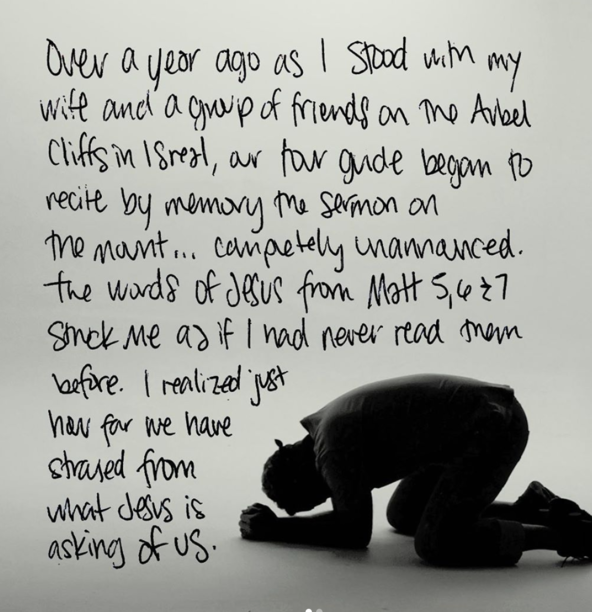 Over a year ago as I stood with my
wife and a group of friends on the Arbel
Cliffs in Isreal, our tour guide began to
recite by memory the sermon on
the mount... completely unannounced.
The words of Jesus from Matt 5,6 & 7
struck me as if I had never read them
before. I realized just
how far we have
strayed from
what Jesus is
asking of us.